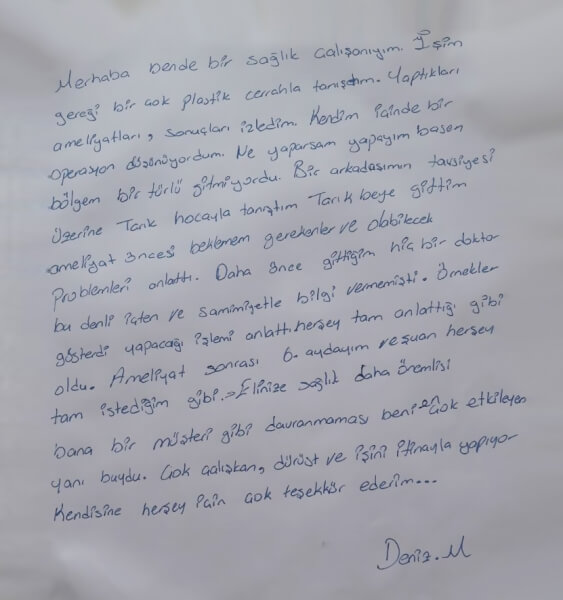 Merhaba bende bir sağlık çalışanıyım. İşim
gereği bir çok plastik cerrahla tanıştım. Yaptıkları
ameliyatları, sonuçları izledim. Kendim içinde bir
operasyon düşünüyordum. Ne yaparsam yapayım basen
bölgem bir türlü gitmiyordu. Bir arkadaşımın tavsiyesi
üzerine Tarık hocayla tanıştım Tarık beye gittim
ameliyat öncesi beklemem gerekenler ve olabilecek
Problemleri anlattı. Daha önce gittiğim hiç bir doktor
bu denli içten ve samimiyetle bilgi vermemişti. Örnekler
gösterdi yapacağı işlemi anlattı.herşey tam anlattığı gibi
oldu. Ameliyat sonrası 6. aydayım ve şuan herşey
tam istediğim gibi. Elinize sağlık daha önemlisi
bana bir müşteri gibi davranmaması beni en çok etkileyen
yanı buydu. Çok çalışkan, dürüst ve işini itinayla yapıyor
Kendisine herşey için çok teşekkür ederim...
Deniz.M